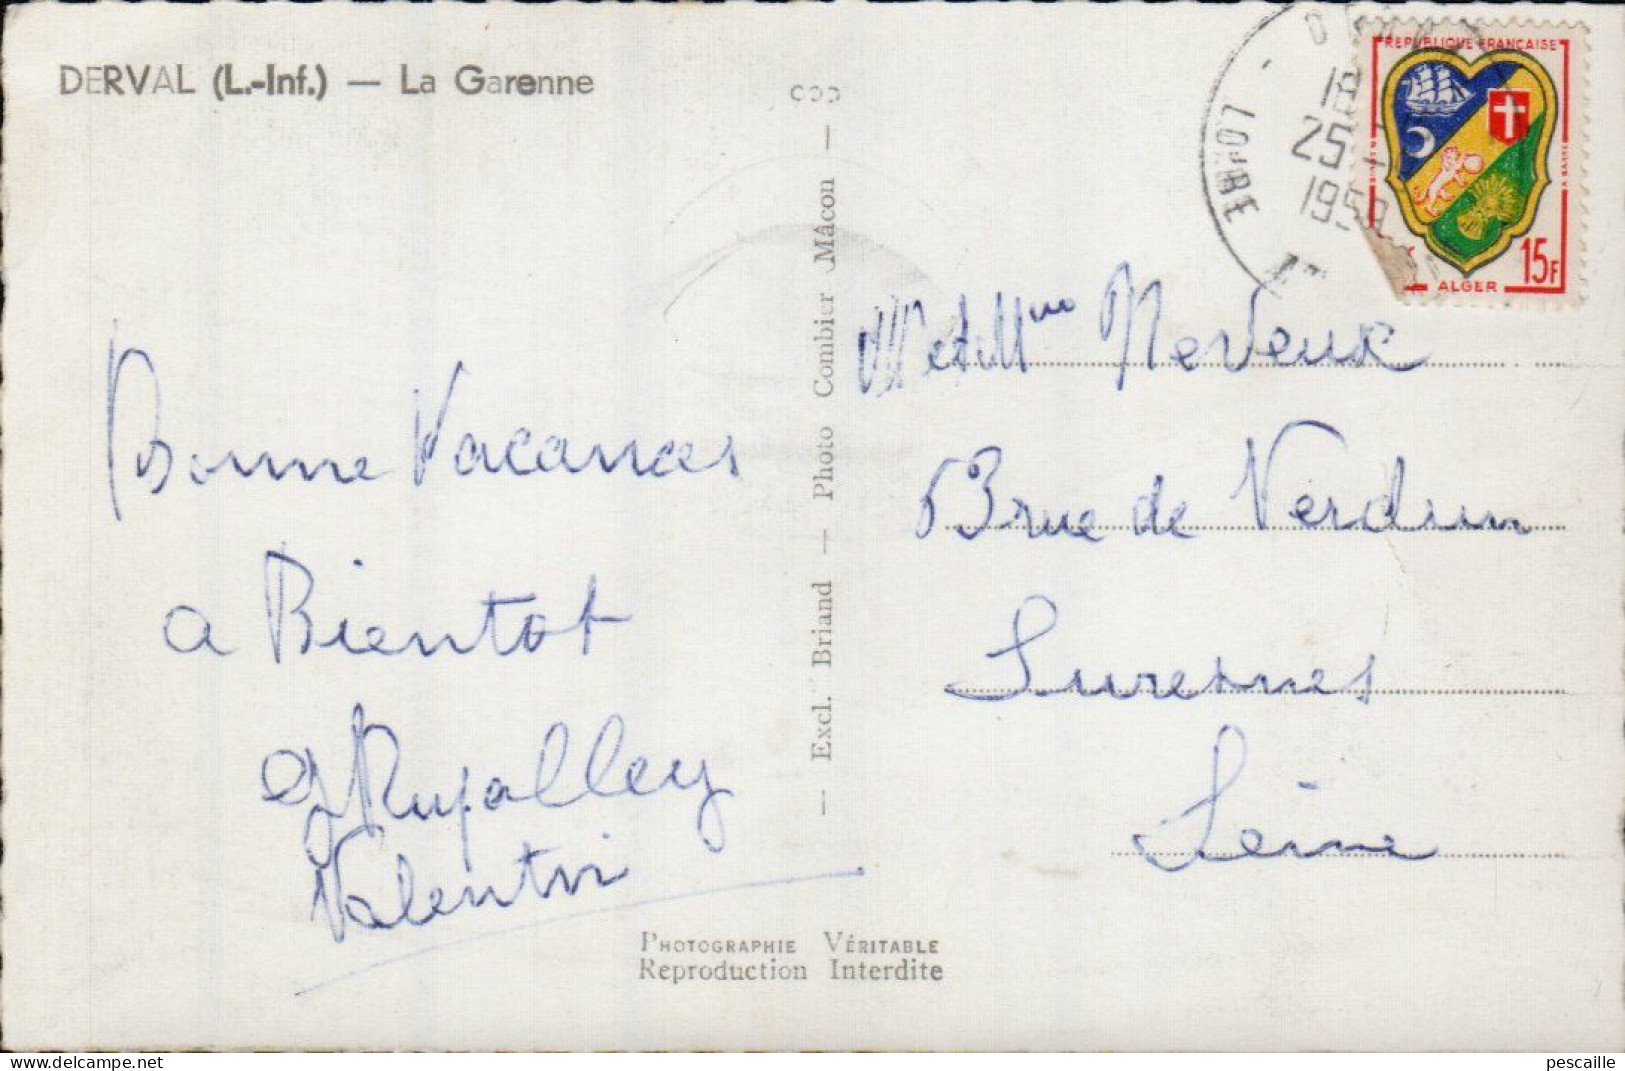 DERVAL (L.-Inf.) — La Garenne
RÉPUBLIQUE FRANÇAISE
18
25
1959
15F
ALGER
Bonne Vacances
a Bientot
Valentin
— Excl. Briand — Photo Combier Mâcon —
M et Mme Neveux
53 rue de Verdun
Suresnes
Seine
PHOTOGRAPHIE VÉRITABLE
Reproduction Interdite
delcampe.net
pescaille